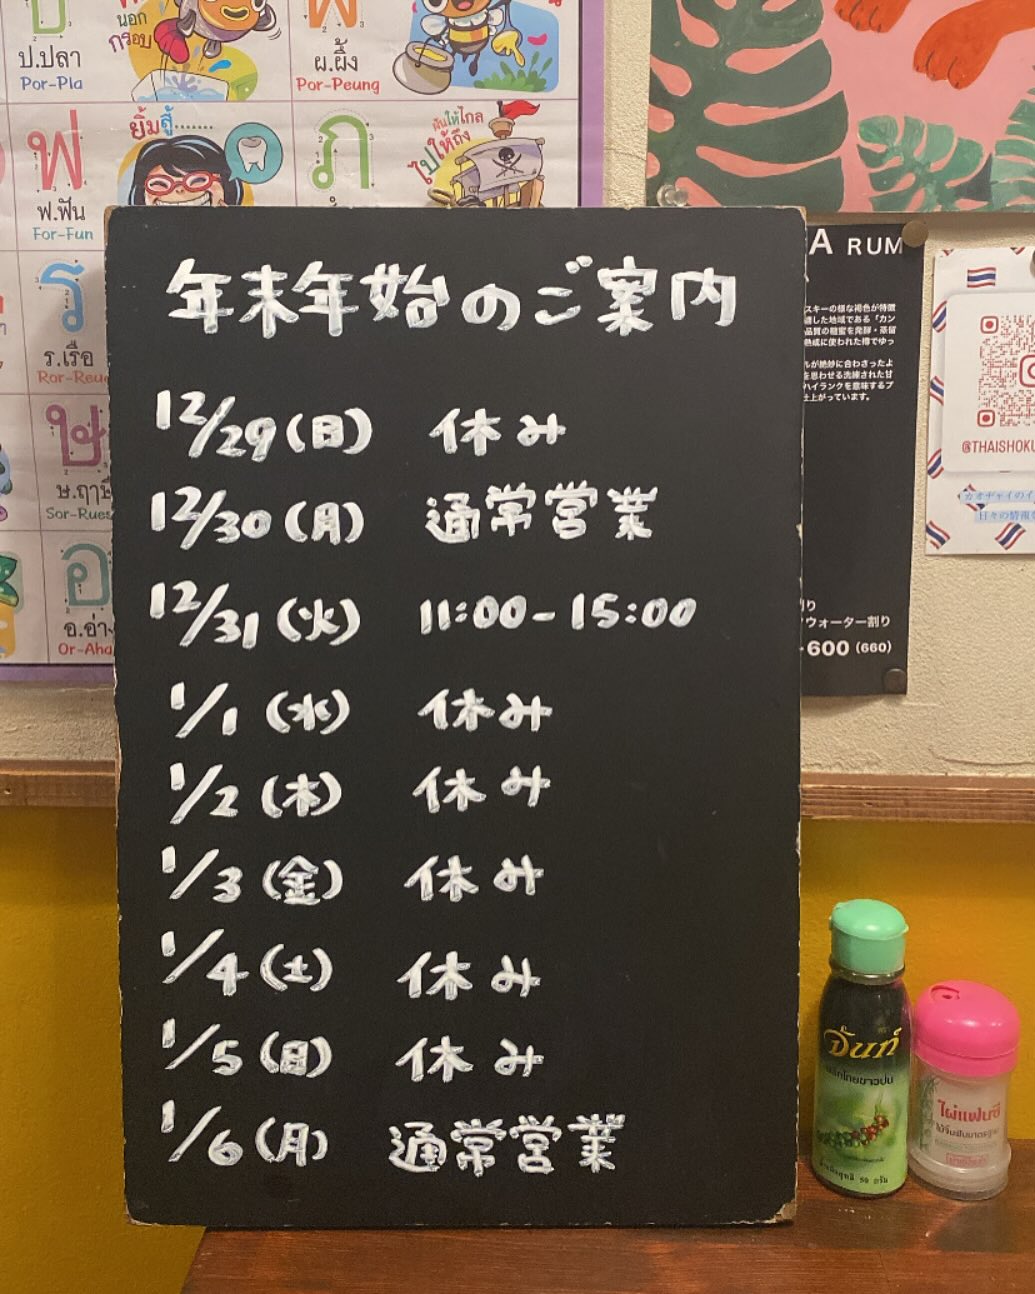 นอก
กรอบ
ป.ปลา
Por-Pla
ผ.ผึ้ง
Por-Peung
ยิ้มสู้.......
ฟ
ฟ.ฟัน
For-Fun
ภ
ฝันให้ไกล
ไปให้ถึง
ร
ร.เรือ
Ror-Reu
ษ
ษ.ฤๅษี
Sor-Rues
อ
อ.อ่าง
Or-Aha
年末年始のご案内
12/29(日) 休み
12/30(月) 通常営業
12/31(火) 11:00-15:00
1/1(水) 休み
1/2(木) 休み
1/3(金) 休み
1/4(土) 休み
1/5(日) 休み
1/6(月) 通常営業
A RUM
スキーの様な褐色が特徴
した地域である「カン
品質の糖蜜を発酵・蒸留
熟成に使われた樽でゆっ
ルが絶妙に合わさったよ
を思わせる洗練された甘
ハイランクを意味するプ
仕上がっています。
割り
ウォーター割り
600(660)
@THAISHOKU
カオヂャイのイ
日々の情報
จันท์
ไผ่แฟนซี